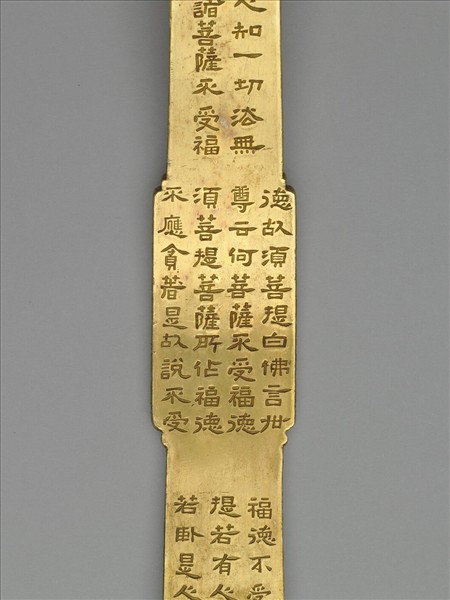 人知一切法無
諸菩薩不受福
德故須菩提白佛言世
尊云何菩薩不受福德
須菩提菩薩所作福德
不應貪著是故說不受
福德不受
提若有人
若臥是人